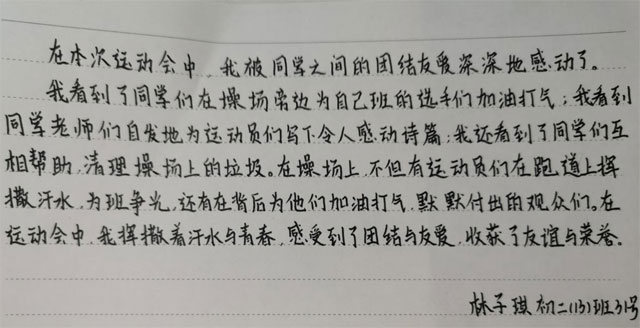 在本次运动会中，我被同学之间的团结友爱深深地感动了。
我看到了同学们在操场旁边为自己班的选手们加油打气；我看到
同学老师们自发地为运动员们写下令人感动诗篇；我还看到了同学们互
相帮助，清理操场上的垃圾。在操场上，不但有运动员们在跑道上挥
撒汗水，为班争光，还有在背后为他们加油打气，默默付出的观众们。在
运动会中，我挥撒着汗水与青春，感受到了团结与友爱，收获了友谊与荣誉。
林子琪 初二(13)班31号